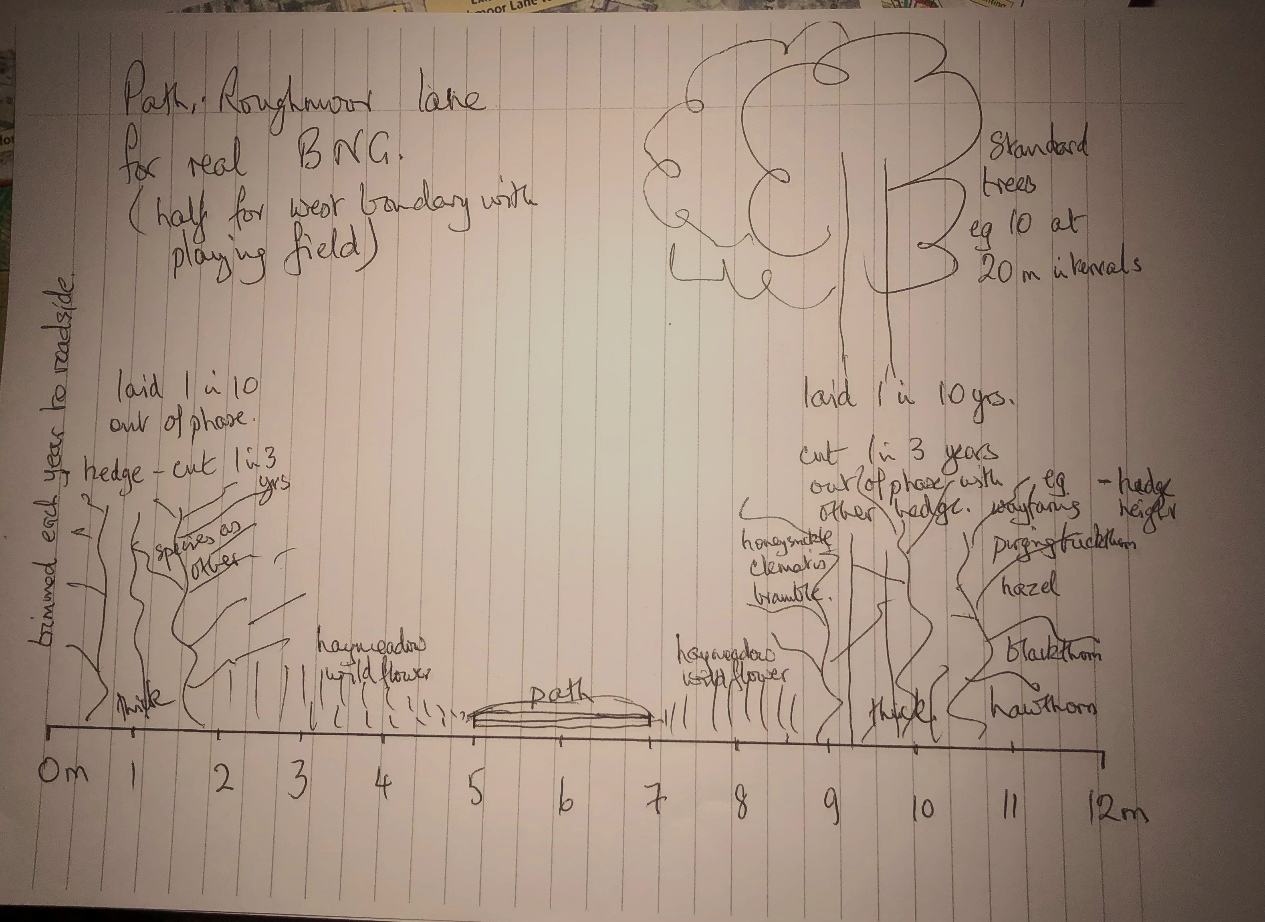 Path, Roughmoor lane
for real BNG.
(half for west boundary with
playing field)
Standard
trees
eg 10 at
20 m intervals
trimmed each year to roadside.
laid 1 in 10
out of phase.
hedge - cut 1 in 3
yrs
species as
other
thick
haymeadow
wildflower
path
haymeadow
wildflower
laid 1 in 10 yrs.
cut 1 in 3 years
out of phase with
other hedge.
honeysuckle
clematis
bramble.
thick
eg
wayfaring
- hedge
height
purging buckthorn
hazel
blackthorn
hawthorn
0m 1 2 3 4 5 6 7 8 9 10 11 12m